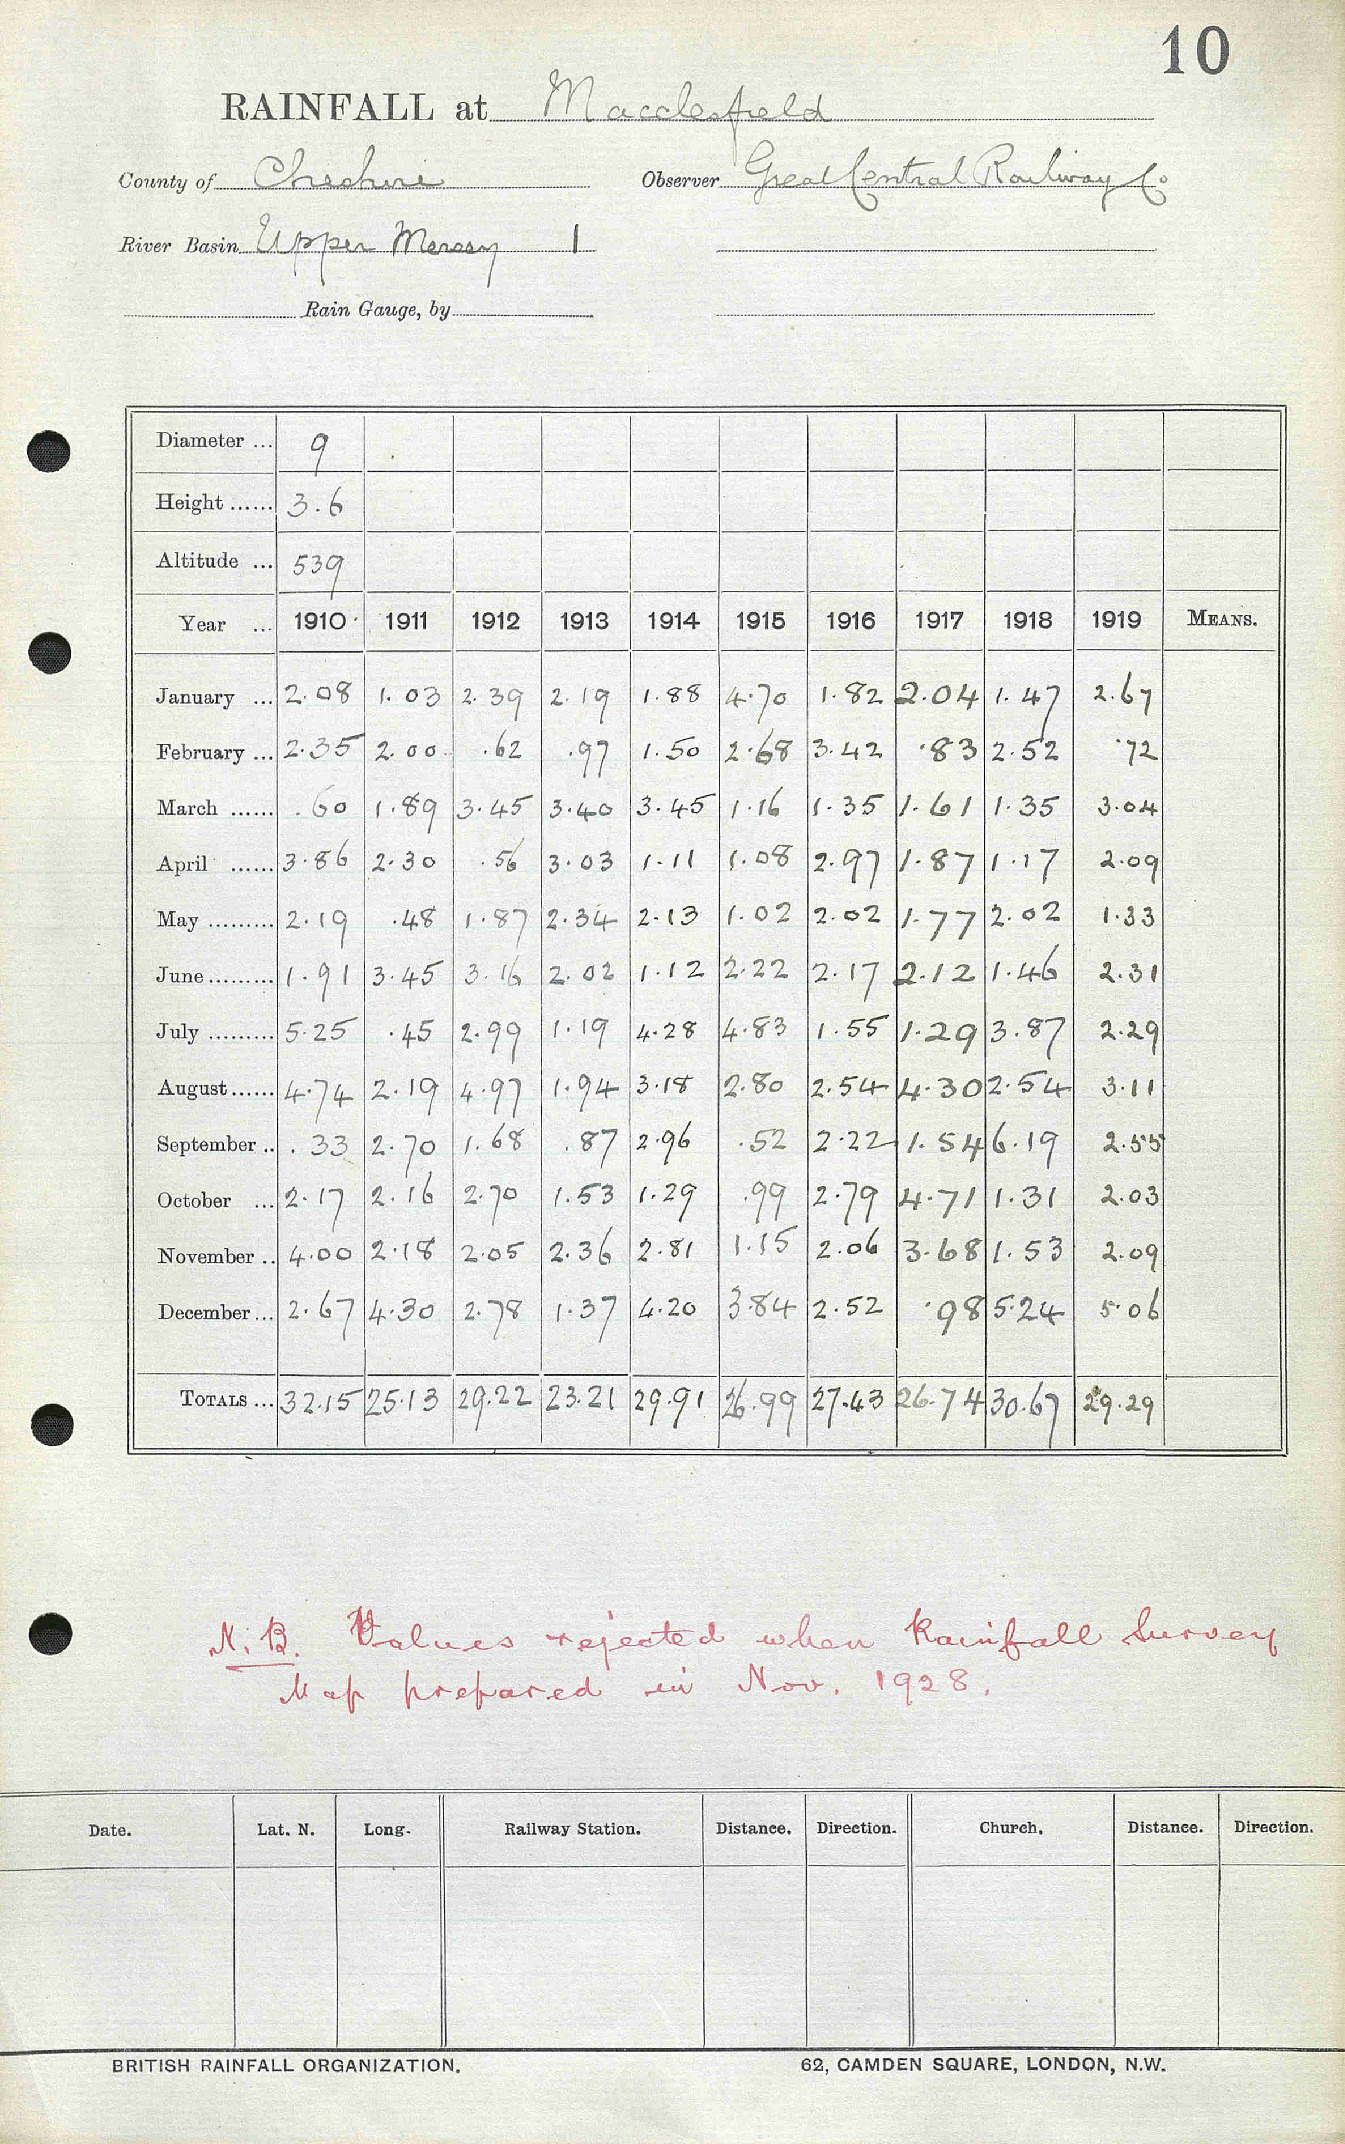 10
RAINFALL at Macclesfield
County of Cheshire Observer Great Central Railway Co
River Basin Upper Mersey 1
Rain Gauge, by
Diameter ... 9
Height ...... 3.6
Altitude ... 539
Year ... 1910 1911 1912 1913 1914 1915 1916 1917 1918 1919 MEANS.
January ... 2.08 1.03 2.39 2.19 1.88 4.70 1.82 2.04 1.47 2.67
February ... 2.35 2.00 .62 .97 1.50 2.68 3.42 .83 2.52 .72
March ...... .60 1.89 3.45 3.40 3.45 1.16 1.35 1.61 1.35 3.04
April ...... 3.86 2.30 .56 3.03 1.11 1.08 2.97 1.87 1.17 2.09
May ......... 2.19 .48 1.87 2.34 2.13 1.02 2.02 1.77 2.02 1.33
June ......... 1.91 3.45 3.16 2.02 1.12 2.22 2.17 2.12 1.46 2.31
July ......... 5.25 .45 2.99 1.19 4.28 4.83 1.55 1.29 3.87 2.29
August ...... 4.74 2.19 4.97 1.94 3.18 2.80 2.54 4.30 2.54 3.11
September .. .33 2.70 1.68 .87 2.96 .52 2.22 1.54 6.19 2.55
October ... 2.17 2.16 2.70 1.53 1.29 .99 2.79 4.71 1.31 2.03
November .. 4.00 2.18 2.05 2.36 2.81 1.15 2.06 3.68 1.53 2.09
December ... 2.67 4.30 2.78 1.37 4.20 3.84 2.52 .98 5.24 5.06
TOTALS ... 32.15 25.13 29.22 23.21 29.91 26.99 27.43 26.74 30.67 29.29
N.B. Values rejected when Rainfall Survey
Map prepared in Nov. 1928.
Date. Lat. N. Long. Railway Station. Distance. Direction. Church. Distance. Direction.
BRITISH RAINFALL ORGANIZATION. 62, CAMDEN SQUARE, LONDON, N.W.